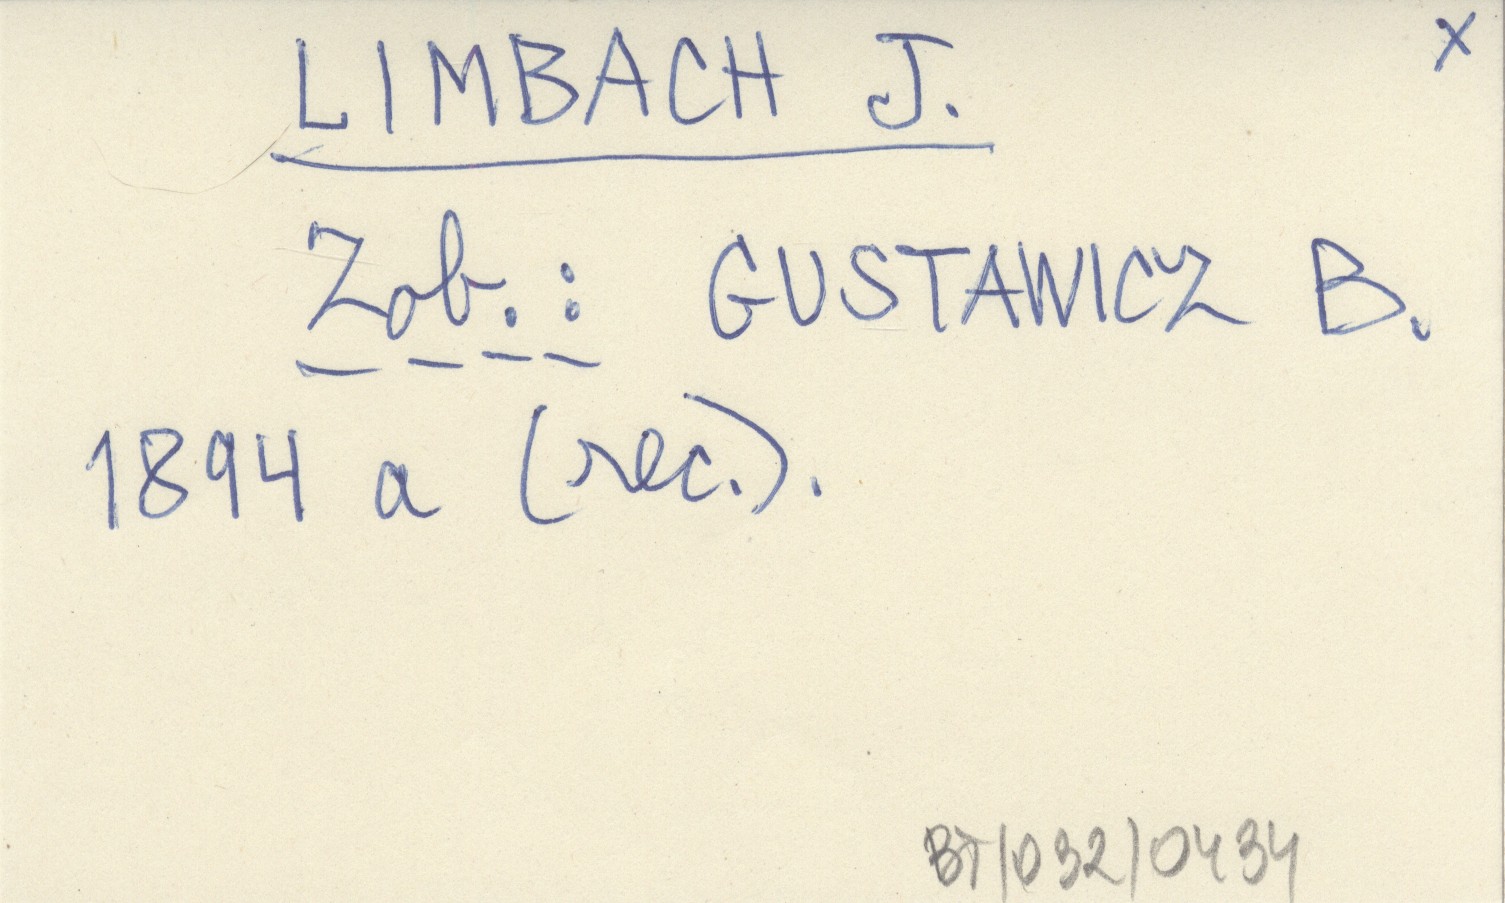 x
LIMBACH J.
Zob.: GUSTAWICZ B.
1894 a (rec.).
BT/032/0434